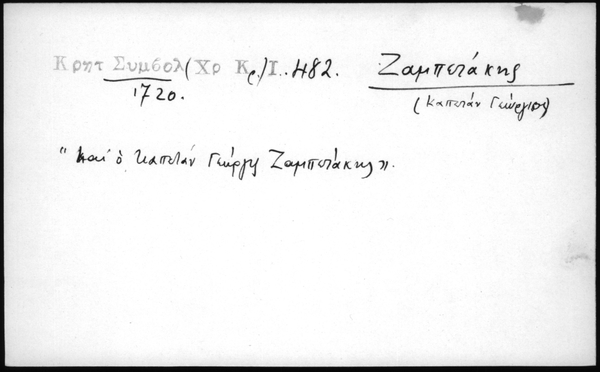 Κρητ Συμβολ (Χρ Κρ) Ι.. 482.
1720.
Ζαμπετάκης
(Καπετάν Γεώργιος)
"και ὁ Καπετάν Γεώργης Ζαμπετάκης".